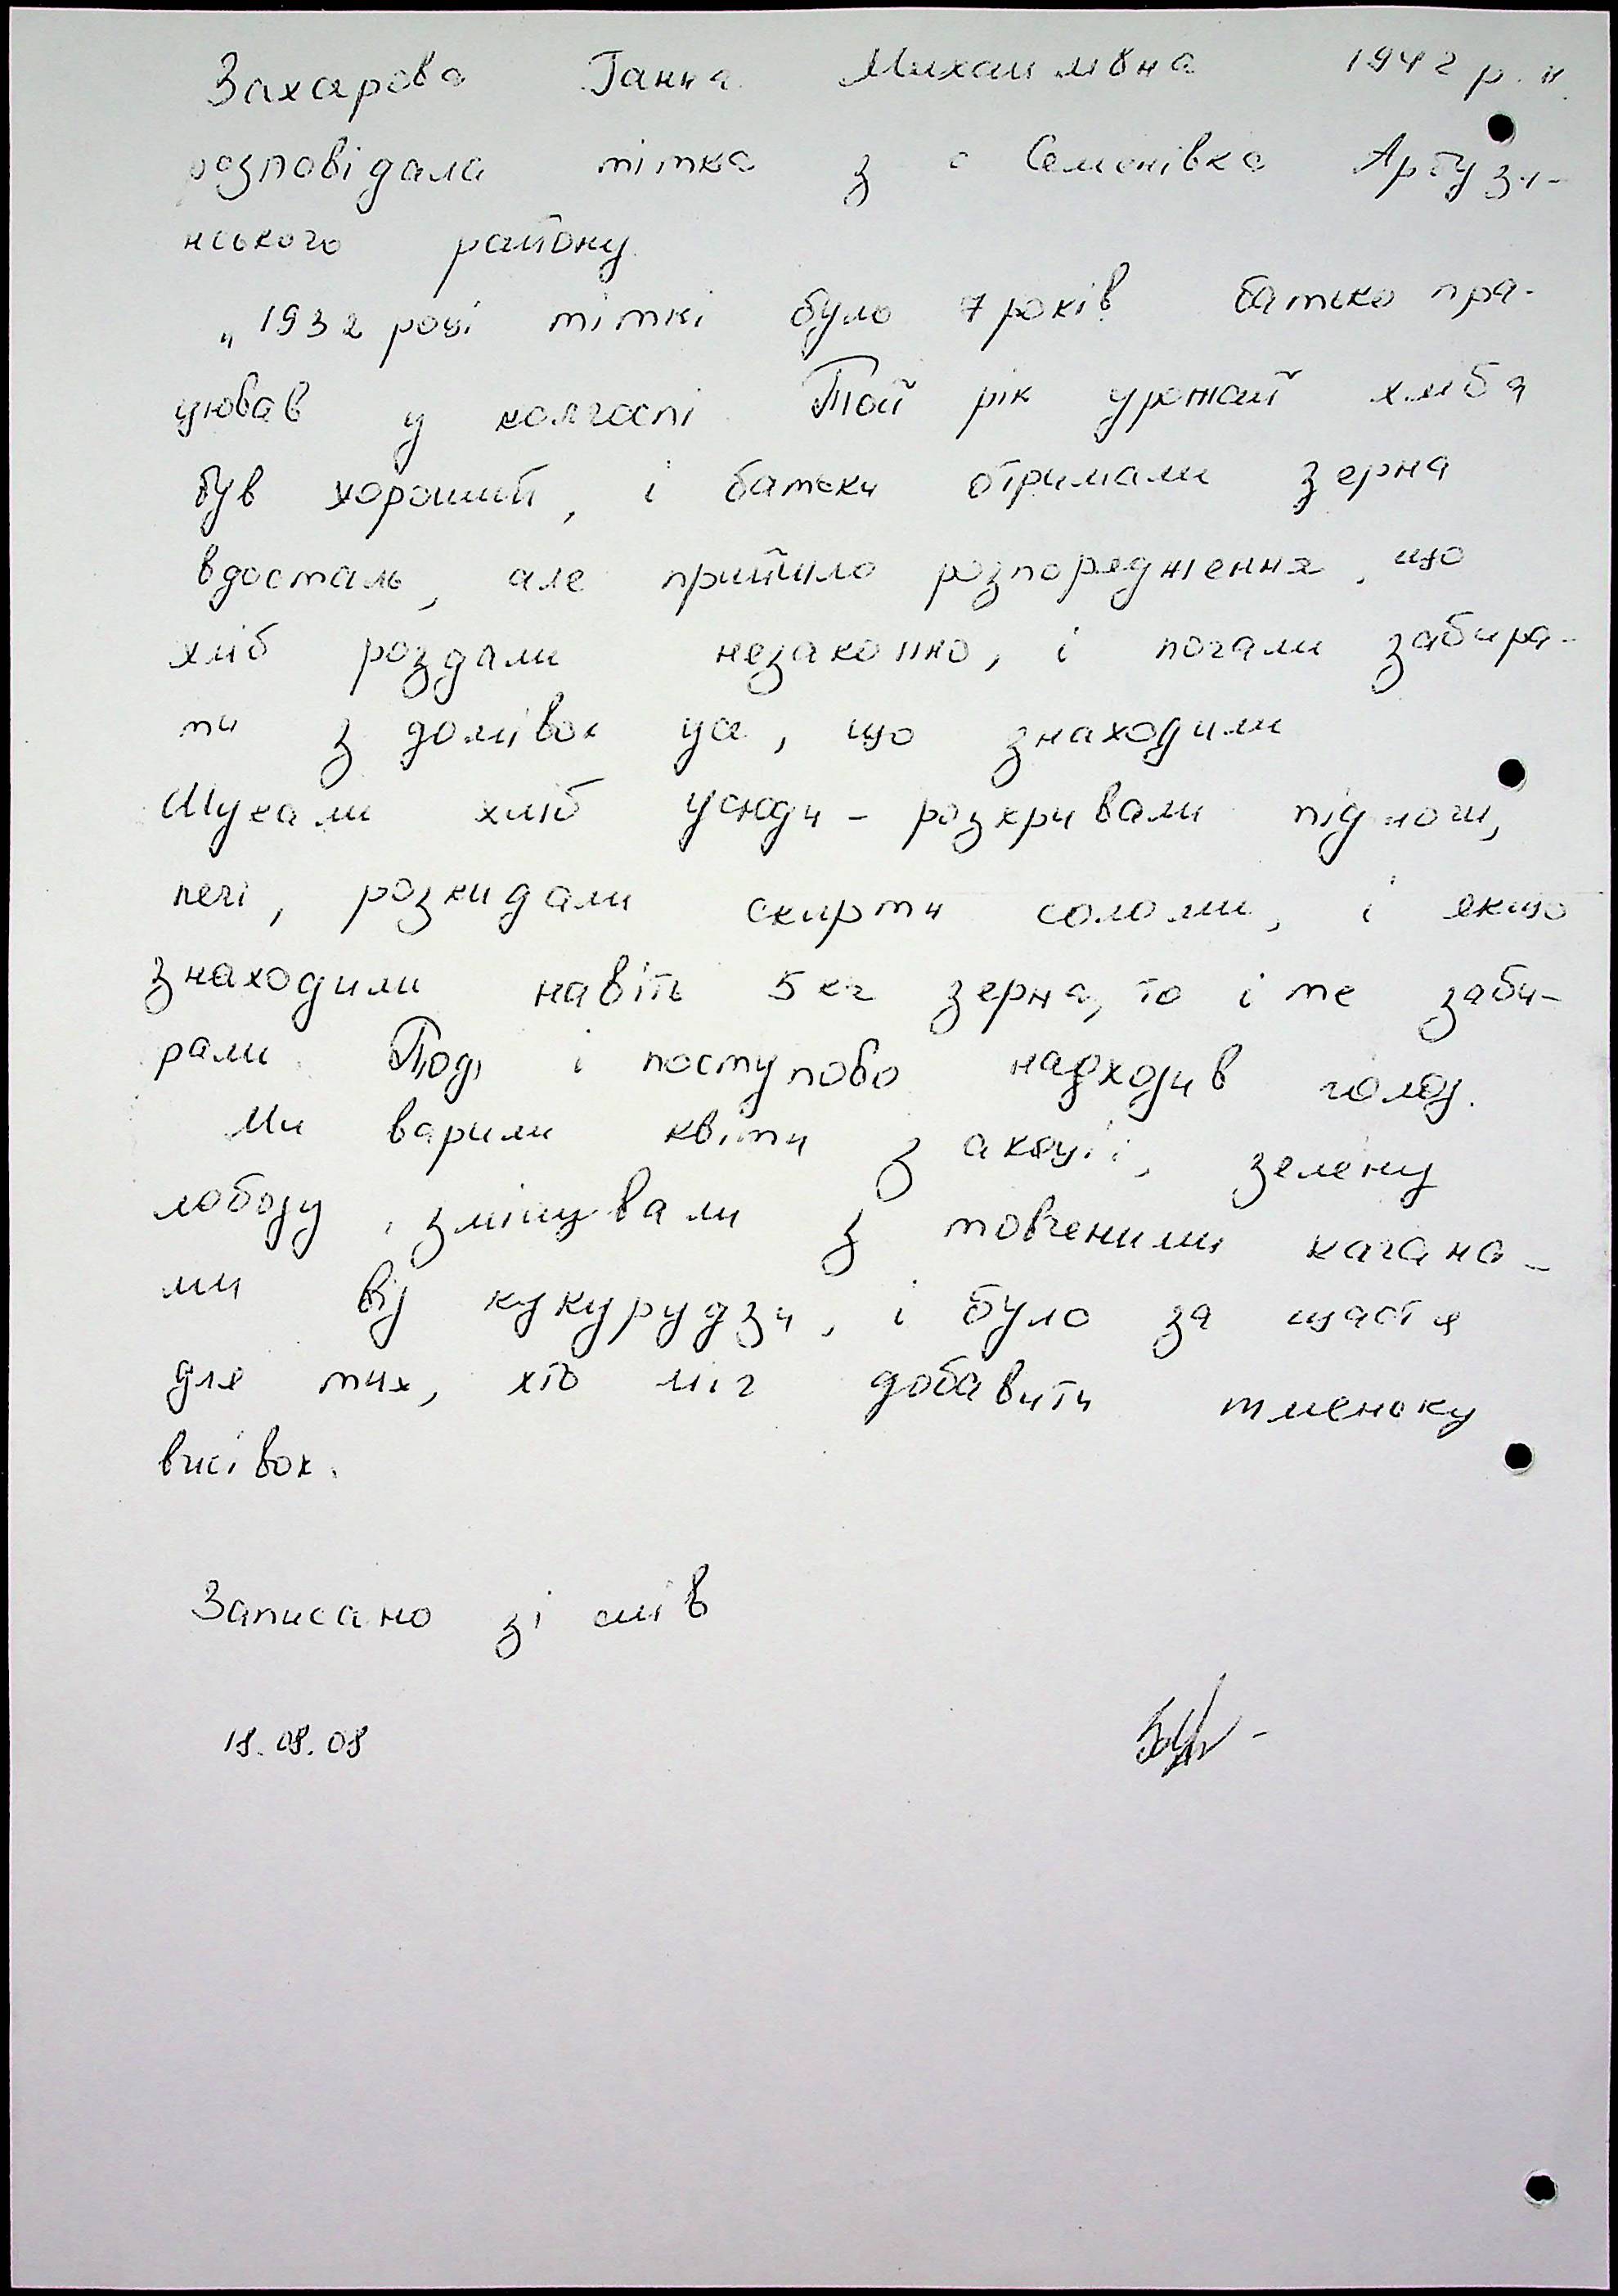 Захарова Ганна Михайлівна 1942 р. н.
розповідала тітка з с Семенівка Арбузи-
нського району.
„1932 році тіткі було 7 років. батько пра-
цював у колгоспі. Той рік урожай хліба
був хороший, і батьки отримали зерна
вдосталь, але прийшло розпорядження, що
хліб роздали незаконно, і почали забира-
ти з домівок усе, що знаходили
Шукали хліб усюди – розкривали підлоги,
печі, розкидали скирти соломи, і якщо
знаходили навіть 5 кг зерна, то і те заби-
рали. Тоді і поступово надходив голод.
Ми варили квіти з акації, зелену
лободу, змішували з товченими качана-
ми від кукурудзи, і було за щастя
для тих, хто міг добавити жменьку
висівок.
Записано зі слів
18.08.08